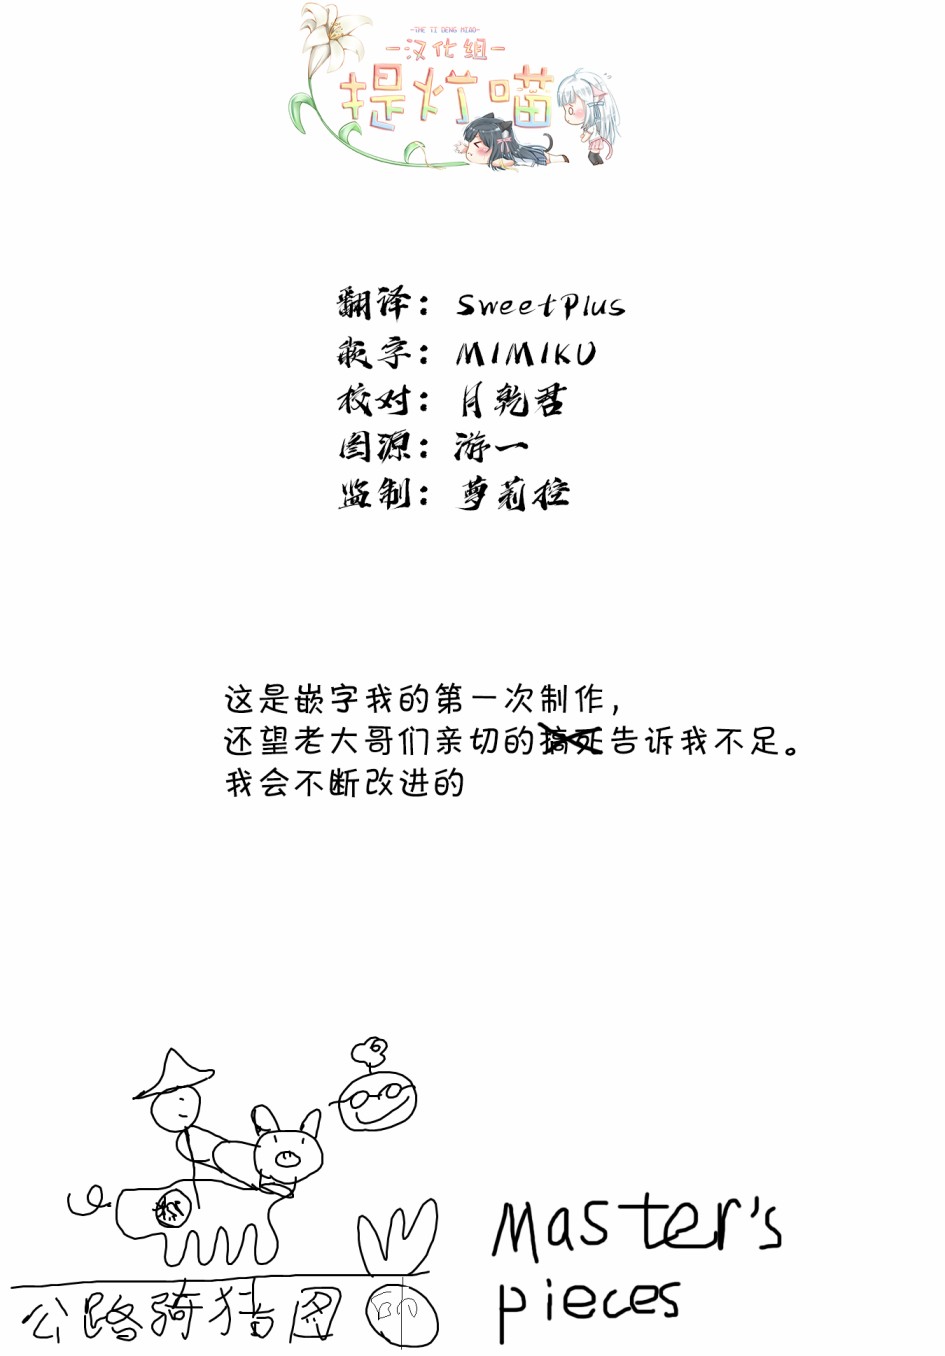 -THE TI DENG MIAO-
-汉化组-
提灯喵
翻译：SweetPlus
嵌字：MIMIKU
校对：月乾君
图源：游一
监制：萝莉控
这是嵌字我的第一次制作，
还望老大哥们亲切的搞死告诉我不足。
我会不断改进的
Master's
pieces
公路骑猪图